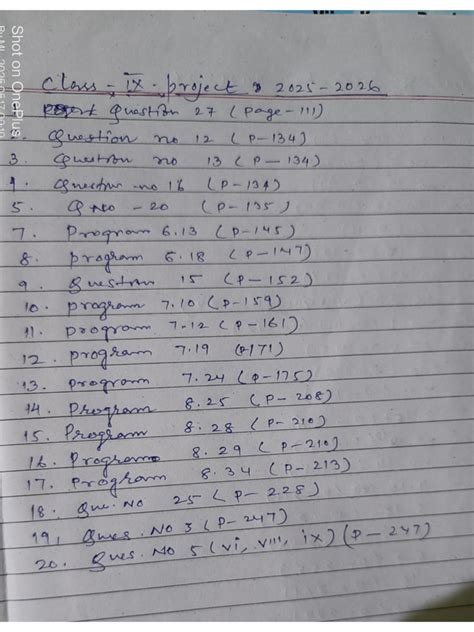 Class - IX - project 2025-2026
Question 27 (page-111)
2. Question no 12 (P-134)
3. Question no 13 (P-134)
4. Question no 16 (P-134)
5. Q No - 20 (P-135)
7. Program 6.13 (P-145)
8. program 6.18 (P-147)
9. Question 15 (P-152)
10. program 7.10 (P-159)
11. program 7.12 (P-161)
12. program 7.19 (P171)
13. Program 7.24 (P-175)
14. Program 8.25 (P-208)
15. Program 8.28 (P-210)
16. Program 8.29 (P-210)
17. Program 8.34 (P-213)
18. Que. No 25 (P-228)
19, Ques. No 3 (P-247)
20. Ques. No 5 (vi, viii, ix) (P-247)
Shot on OnePlus